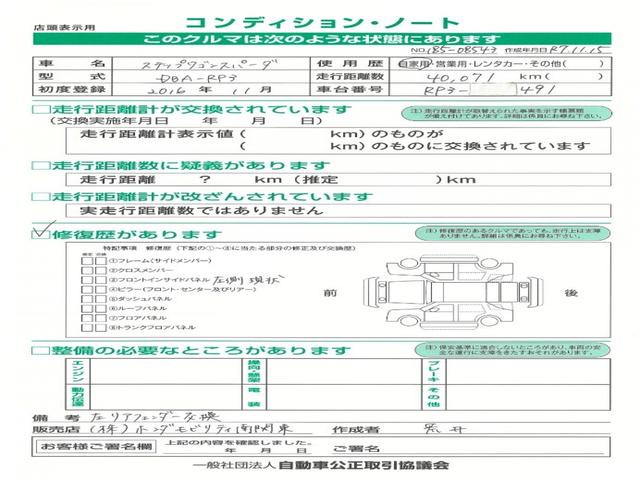 店頭表示用
コンディション・ノート
このクルマは次のような状態にあります
NO.185-08543 作成年月日 R7.11.15
車名 ステップワゴンスパーダ 使用歴 自家用・営業用・レンタカー・その他( )
型式 DBA-RP3 走行距離数 40,071 km( )
初度登録 2016年 11月 車台番号 RP3- 491
□走行距離計が交換されています
(交換実施年月日 年 月 日)
注)走行距離計が取替えられた事実を示す帳票類が備え付けてあります。詳細は係員にお尋ね下さい。
走行距離計表示値( km)のものが
( km)のものに交換されています
□走行距離数に疑義があります
走行距離 ? km(推定 )km
□走行距離計が改ざんされています
実走行距離数ではありません
□修復歴があります
注)修復歴のあるクルマであっても、走行上は支障ありません。詳細は係員にお尋ね下さい。
特記事項 修復歴(下記の①~⑧に当たる部分の修正及び交換歴)
修正 交換
①フレーム(サイドメンバー)
②クロスメンバー
③フロントインサイドパネル 左側現状
④ピラー(フロント・センター及びリアー)
⑤ダッシュパネル
⑥ルーフパネル
⑦フロアパネル
⑧トランクフロアパネル
前 後
□整備の必要なところがあります
注)保安基準に適合しないところがあり、車両の安全な運行に支障をきたすおそれがあります。
エンジン 操向・懸架 ブレーキ
動力伝達 電装 その他
備考 左リアフェンダー交換
販売店 (株)ホンダモビリティ南関東 作成者 荒井
お客様ご署名欄 上記の内容を確認しました。
年 月 日 ご署名
一般社団法人 自動車公正取引協議会